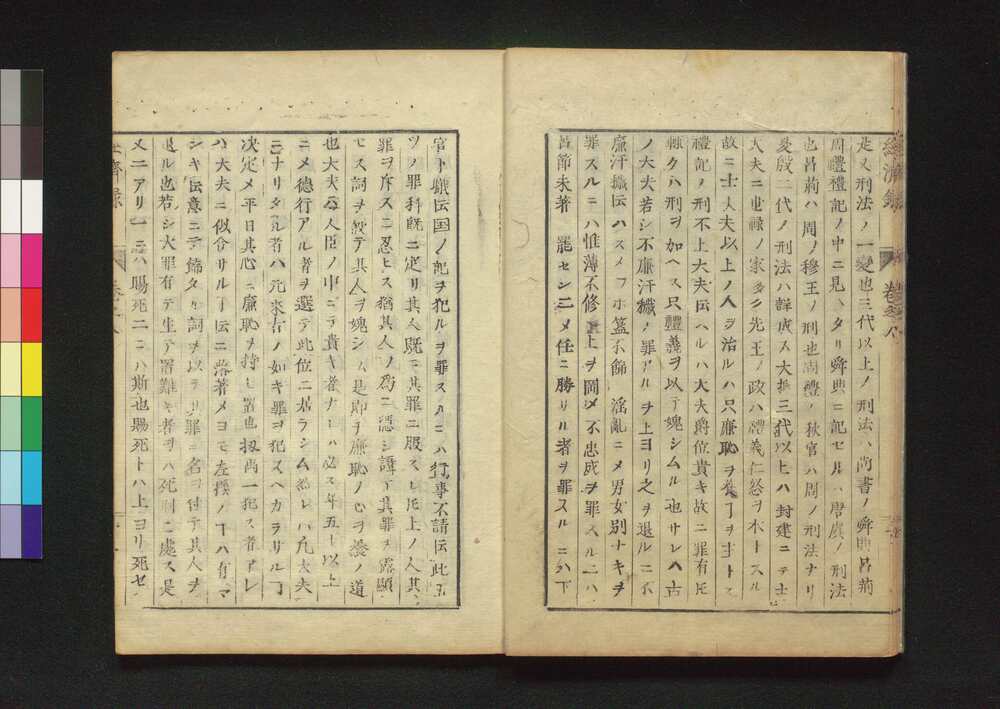 經濟録 卷之八
是又刑法ノ一變也三代以上ノ刑法ハ尚書ノ舜典呂荊
周禮禮記ノ中ニ見ヘタリ舜典ニ記セルハ唐虞ノ刑法
也呂荊ハ周ノ穆王ノ刑也周禮ノ秋官ハ周ノ刑法ナリ
夏殷二代ノ刑法ハ詳ナラス大抵三代以上ハ封建ニテ士
大夫ニ世禄ノ家多シ先王ノ政ハ禮義仁恕ヲ本トスル
故ニ士大夫以上ノ人ヲ治ルハ只廉恥ヲ養フヿヲ主トス
禮記ノ刑不上大夫ト云ヘルハ大夫ハ爵位貴キ故ニ罪有圧
輙ク刑ヲ加ヘス只禮義ヲ以テ愧シムル也サレハ古
ノ大夫若シ不廉汙穢ノ罪アルヲ上ヨリ之ヲ退ルニ不
廉汙穢ト云ハスメフホ簋不飾 淫亂ニメ男女別ナキヲ
罪スルニハ惟薄不修 上ヲ罔メ不忠成ヲ罪スルニハ
臣節未著 罷センニメ任ニ勝サル者ヲ罪スルニハ下
官不職ト云国ノ記ヲ犯ルヲ罪スルニハ行事不請ト云此五
ツノ罪科既ニ定リ其人既ニ其罪ニ服スレ圧上ノ人其
罪ヲ斥スニ忍ヒス猶其人ノ爲ニ隠シ諱テ其罪ヲ露顯
セス詞ヲ設テ其人ヲ愧シム是即チ廉恥ノ心ヲ養ノ道
也大夫ハ人臣ノ中ニテ貴キ者ナレハ必ス年五十以上
ニメ德行アル者ヲ選テ此位ニ居ラシム然レハ凡大夫
ニナリタル者ハ元来右ノ如キ罪ヲ犯スヘカラサルヿ
決定メ平日其心ニ廉恥ヲ持シ置也扨爯一犯ス者アレ
ハ大夫ニ似合サルヿト云ニ落著メヨモ左樣ノヿハ有マ
シキト云意ニテ飾タル詞ヲ以テ其罪ニ名ヲ付テ其人ヲ
退ル也若シ大罪有テ生テ置難キ者ヲハ死刑ニ處ス是
又二アリ一ニハ賜死二ニハ斯也賜死トハ上ヨリ死セ
濟録 卷之八